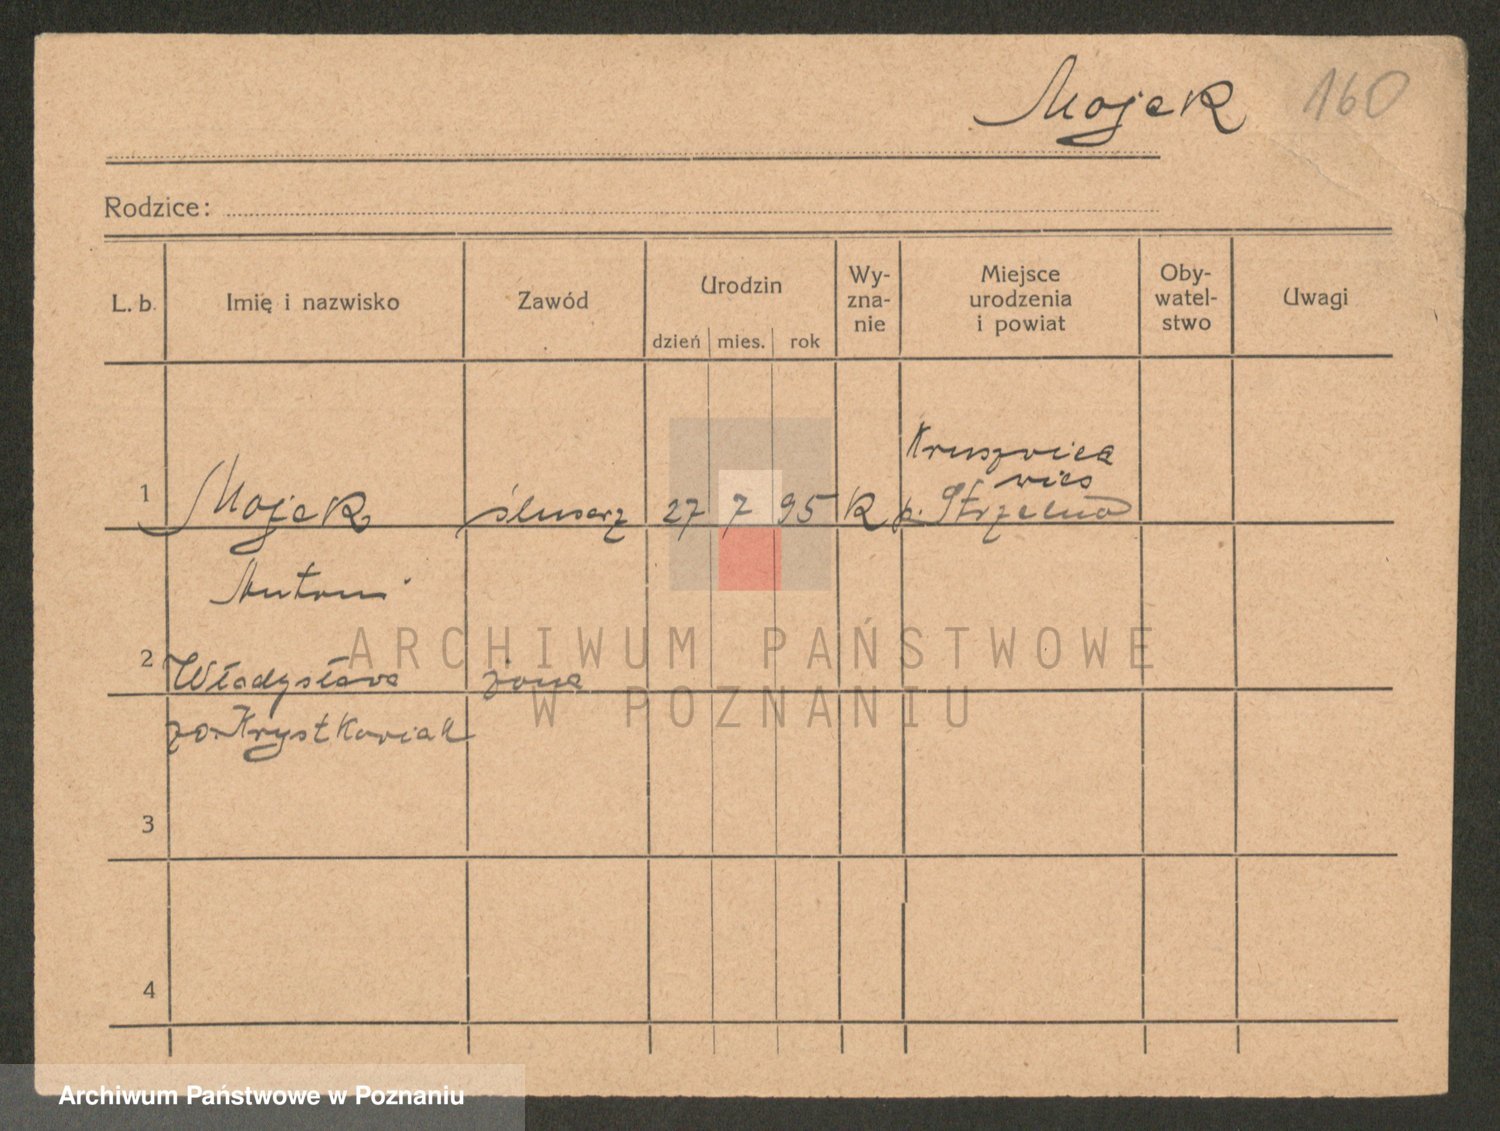 Mojek 160
Rodzice:
L. b. Imię i nazwisko Zawód Urodzin Wy- Miejsce Oby- Uwagi
zna- urodzenia watel-
nie i powiat stwo
dzień mies. rok
Kruszwica
wieś
1 Mojek ślusarz 27 7 95 R p. Strzelno
Antoni
2 Władysława żona
zd. Krystkowiak
3
4
ARCHIWUM PAŃSTWOWE
W POZNANIU
Archiwum Państwowe w Poznaniu